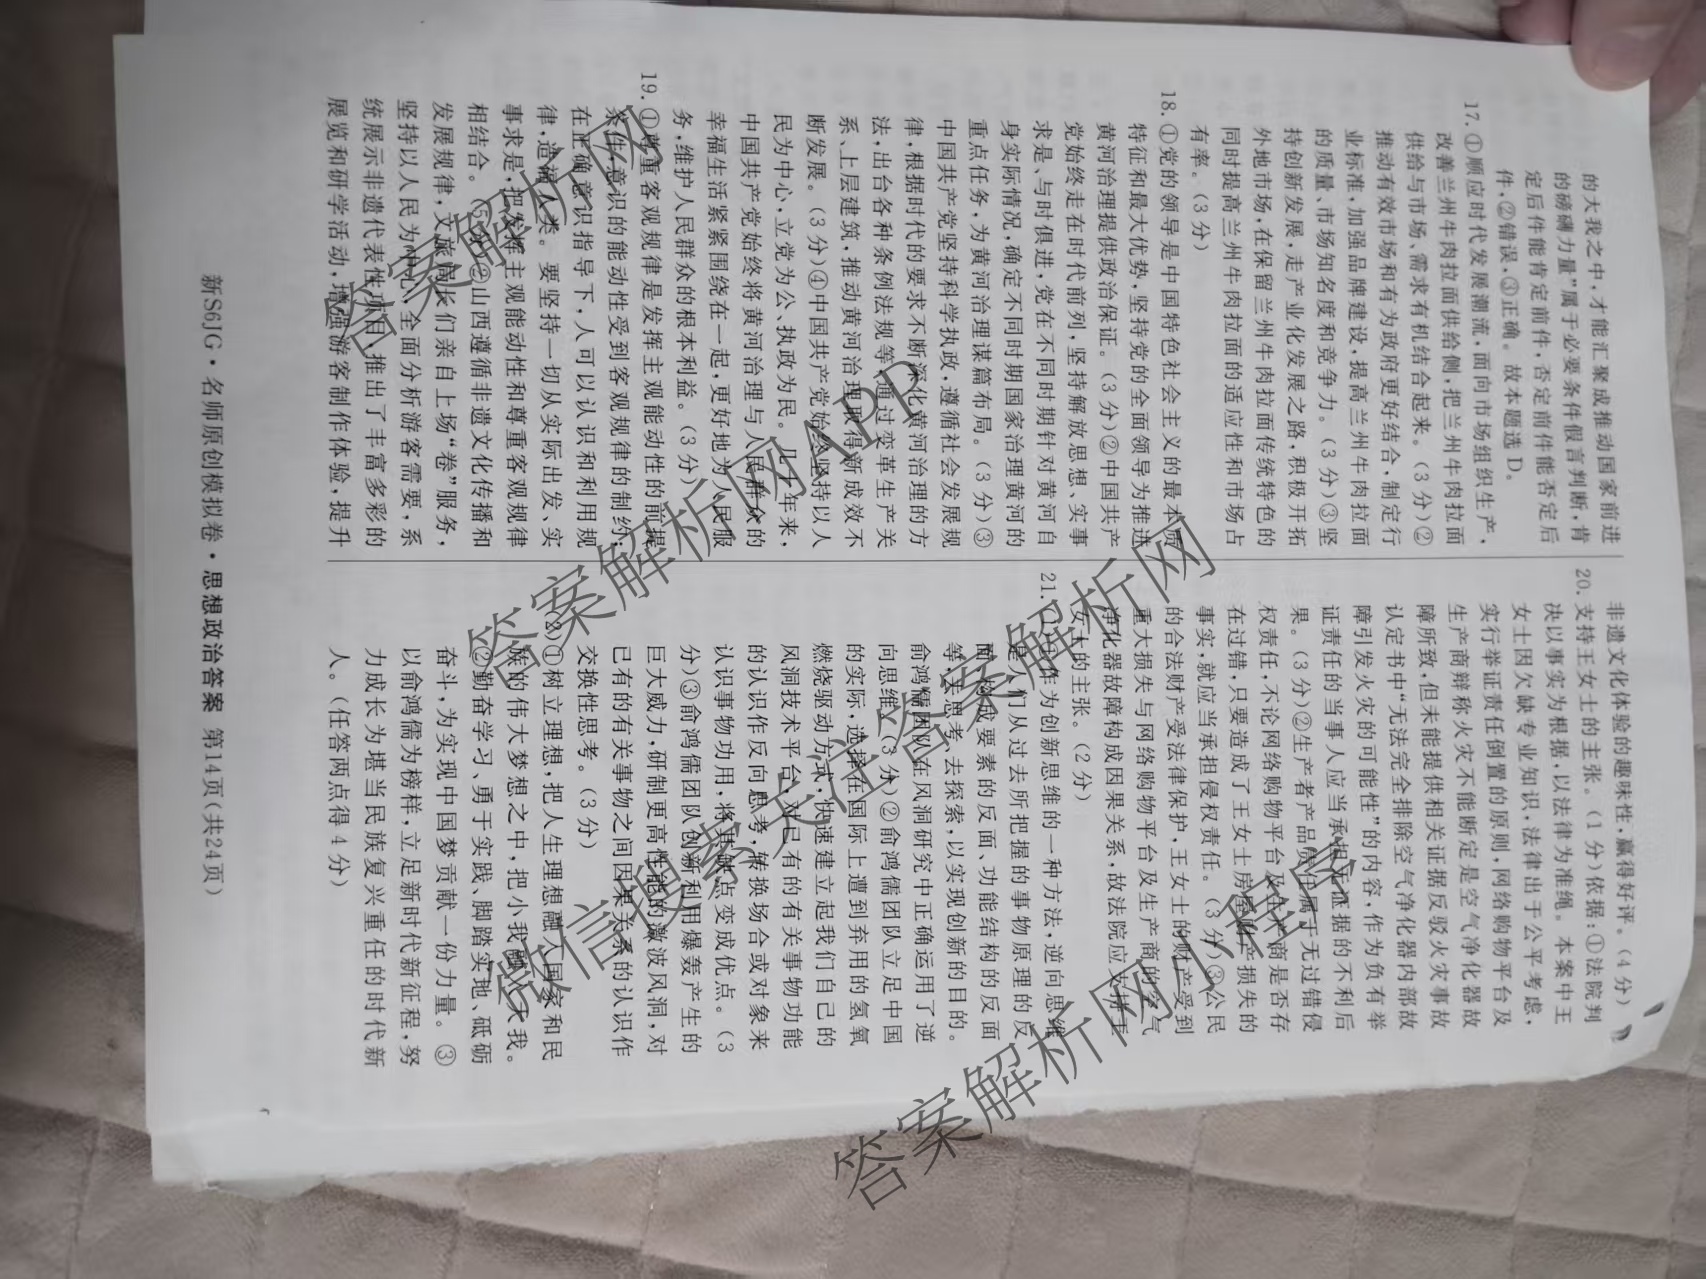 的大我之中,才能汇聚成推动国家前进
的磅礴力量”属于必要条件假言判断,肯
定后件能肯定前件,否定前件能否定后
件,②错误,③正确。故本题选 D。
17. ①顺应时代发展潮流,面向市场组织生产,
改善兰州牛肉拉面供给侧,把兰州牛肉拉面
供给与市场、需求有机结合起来。(3 分)②
推动有效市场和有为政府更好结合,制定行
业标准,加强品牌建设,提高兰州牛肉拉面
的质量、市场知名度和竞争力。(3 分)③坚
持创新发展,走产业化发展之路,积极开拓
外地市场,在保留兰州牛肉拉面传统特色的
同时提高兰州牛肉拉面的适应性和市场占
有率。(3 分)
18. ①党的领导是中国特色社会主义的最本质
特征和最大优势,坚持党的全面领导为推进
黄河治理提供政治保证。(3 分)②中国共产
党始终走在时代前列,坚持解放思想、实事
求是、与时俱进,党在不同时期针对黄河自
身实际情况,确定不同时期国家治理黄河的
重点任务,为黄河治理谋篇布局。(3 分)③
中国共产党坚持科学执政,遵循社会发展规
律,根据时代的要求不断深化黄河治理的方
法,出台各种条例法规等,通过变革生产关
系、上层建筑,推动黄河治理取得新成效不
断发展。(3 分)④中国共产党始终坚持以人
民为中心,立党为公、执政为民。几十年来,
中国共产党始终将黄河治理与人民群众的
幸福生活紧紧围绕在一起,更好地为人民服
务,维护人民群众的根本利益。(3 分)
19. ①尊重客观规律是发挥主观能动性的前提
条件,意识的能动性受到客观规律的制约,
在正确意识指导下,人可以认识和利用规
律,造福人类。要坚持一切从实际出发、实
事求是,把发挥主观能动性和尊重客观规律
相结合。(5 分)②山西遵循非遗文化传播和
发展规律,文旅局长们亲自上场“卷”服务,
坚持以人民为中心,全面分析游客需要,系
统展示非遗代表性项目,推出了丰富多彩的
展览和研学活动,增强游客制作体验,提升
非遗文化体验的趣味性,赢得好评。(4 分)
20. 支持王女士的主张。(1 分)依据:①法院判
决以事实为根据,以法律为准绳。本案中王
女士因欠缺专业知识,法律出于公平考虑,
实行举证责任倒置的原则,网络购物平台及
生产商辩称火灾不能断定是空气净化器故
障所致,但未能提供相关证据反驳火灾事故
认定书中“无法完全排除空气净化器内部故
障引发火灾的可能性”的内容,作为负有举
证责任的当事人应当承担无证据的不利后
果。(3 分)②生产者产品责任属于无过错侵
权责任,不论网络购物平台及生产商是否存
在过错,只要造成了王女士房屋财产损失的
事实,就应当承担侵权责任。(3 分)③公民
的合法财产受法律保护,王女士的财产受到
重大损失与网络购物平台及生产商的空气
净化器故障构成因果关系,故法院应支持王
女士的主张。(2 分)
21. (1)①作为创新思维的一种方法,逆向思维
是人们从过去所把握的事物原理的反
面、构成要素的反面、功能结构的反面
等去思考、去探索,以实现创新的目的。
俞鸿儒团队在风洞研究中正确运用了逆
向思维。(3 分)②俞鸿儒团队立足中国
的实际,选择在国际上遭到弃用的氢氧
燃烧驱动方式,快速建立起我们自己的
风洞技术平台,对已有的有关事物功能
的认识作反向思考,转换场合或对象来
认识事物功用,将其缺点变成优点。(3
分)③俞鸿儒团队创新利用爆轰产生的
巨大威力,研制更高性能的激波风洞,对
已有的有关事物之间因果关系的认识作
交换性思考。(3 分)
(2)①树立理想,把人生理想融入国家和民
族的伟大梦想之中,把小我融入大我。
②勤奋学习、勇于实践、脚踏实地、砥砺
奋斗,为实现中国梦贡献一份力量。③
以俞鸿儒为榜样,立足新时代新征程,努
力成长为堪当民族复兴重任的时代新
人。(任答两点得 4 分)
新S6JG·名师原创模拟卷·思想政治答案 第14页(共24页)
答案解析网
答案解析网APP
答案解析网
微信搜索关注答案解析网小程序
答案解析网